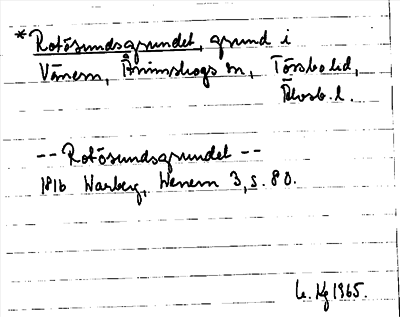 *Rotösundsgrundet, grund i
Vänern, Ånimskogs sn, Tössbo hd,
Älvsb. l.
-- Rotösundsgrundet --
1816 Warberg, Wenern 3, s. 80.
Kg 1965.